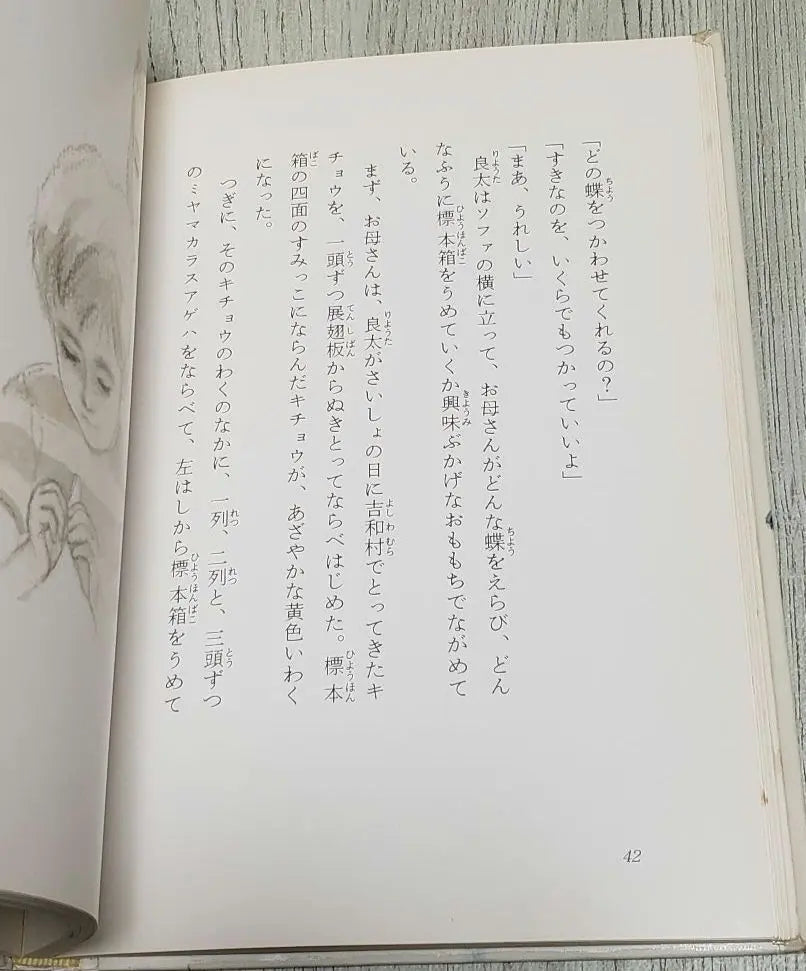 「どの蝶をつかわせてくれるの？」
「すきなのを、いくらでもつかっていいよ」
「まあ、うれしい」
良太はソファの横に立って、お母さんがどんな蝶をえらび、どん
なふうに標本箱をうめていくか興味ぶかげなおももちでながめて
いる。
まず、お母さんは、良太がさいしょの日に吉和村でとってきたキ
チョウを、一頭ずつ展翅板からぬきとってならべはじめた。標本
箱の四面のすみっこにならんだキチョウが、あざやかな黄色いわく
になった。
つぎに、そのキチョウのわくのなかに、一列、二列と、三頭ずつ
のミヤマカラスアゲハをならべて、左はしから標本箱をうめて
42